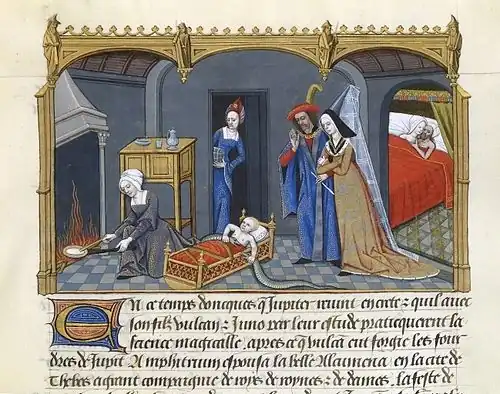 En ce temps doncques q Jupiter viuant en crete & quil auec
son filz vulcan & Juno par leur estude practicquerent la
science magicalle, apres ce q vulcan eut forgie les foul
dres de Jupit Amphitrium espousa la belle Alcumena en la cite de
Thebes a grant compaignie de roys de roynes & de dames, la feste de